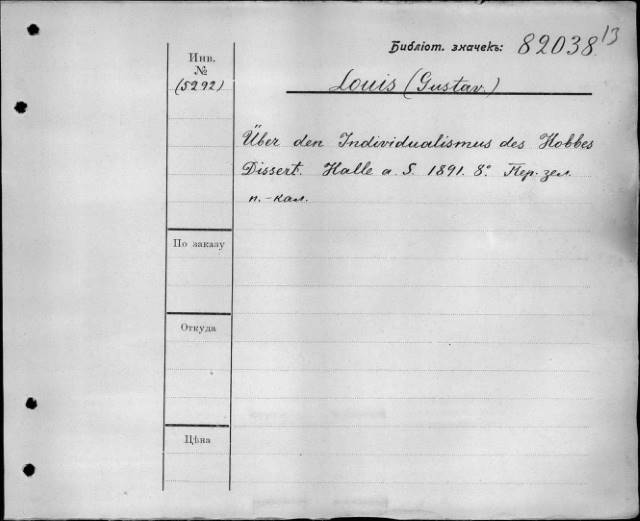 Библіот. значекъ: 82038 13
Инв.
№
(5292)
Louis (Gustav.)
Über den Individualismus des Hobbes
Dissert. Halle a. S. 1891. 8° Пер. зел.
п.-кал.
По заказу
Откуда
Цѣна